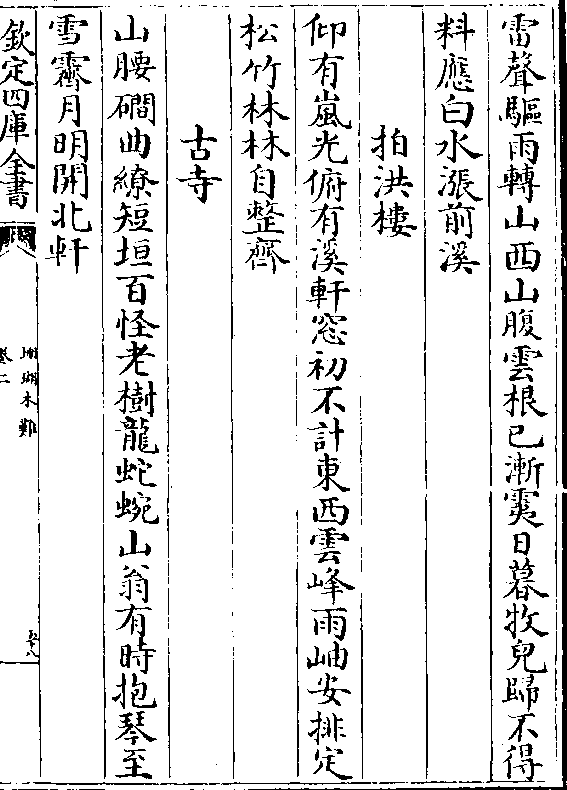 雷聲驅雨轉山西山腹雲根已漸霙日暮牧兒歸不得
料應白水漲前溪
拍洪樓
仰有嵐光俯有溪軒窓初不計東西雲峰雨岫安排定
松竹林林自整齊
古寺
山腰磵曲繚短垣百怪老樹龍蛇蜿山翁有時抱琴至
雪霽月明開北軒
欽定四庫全書
珊瑚木難
卷二